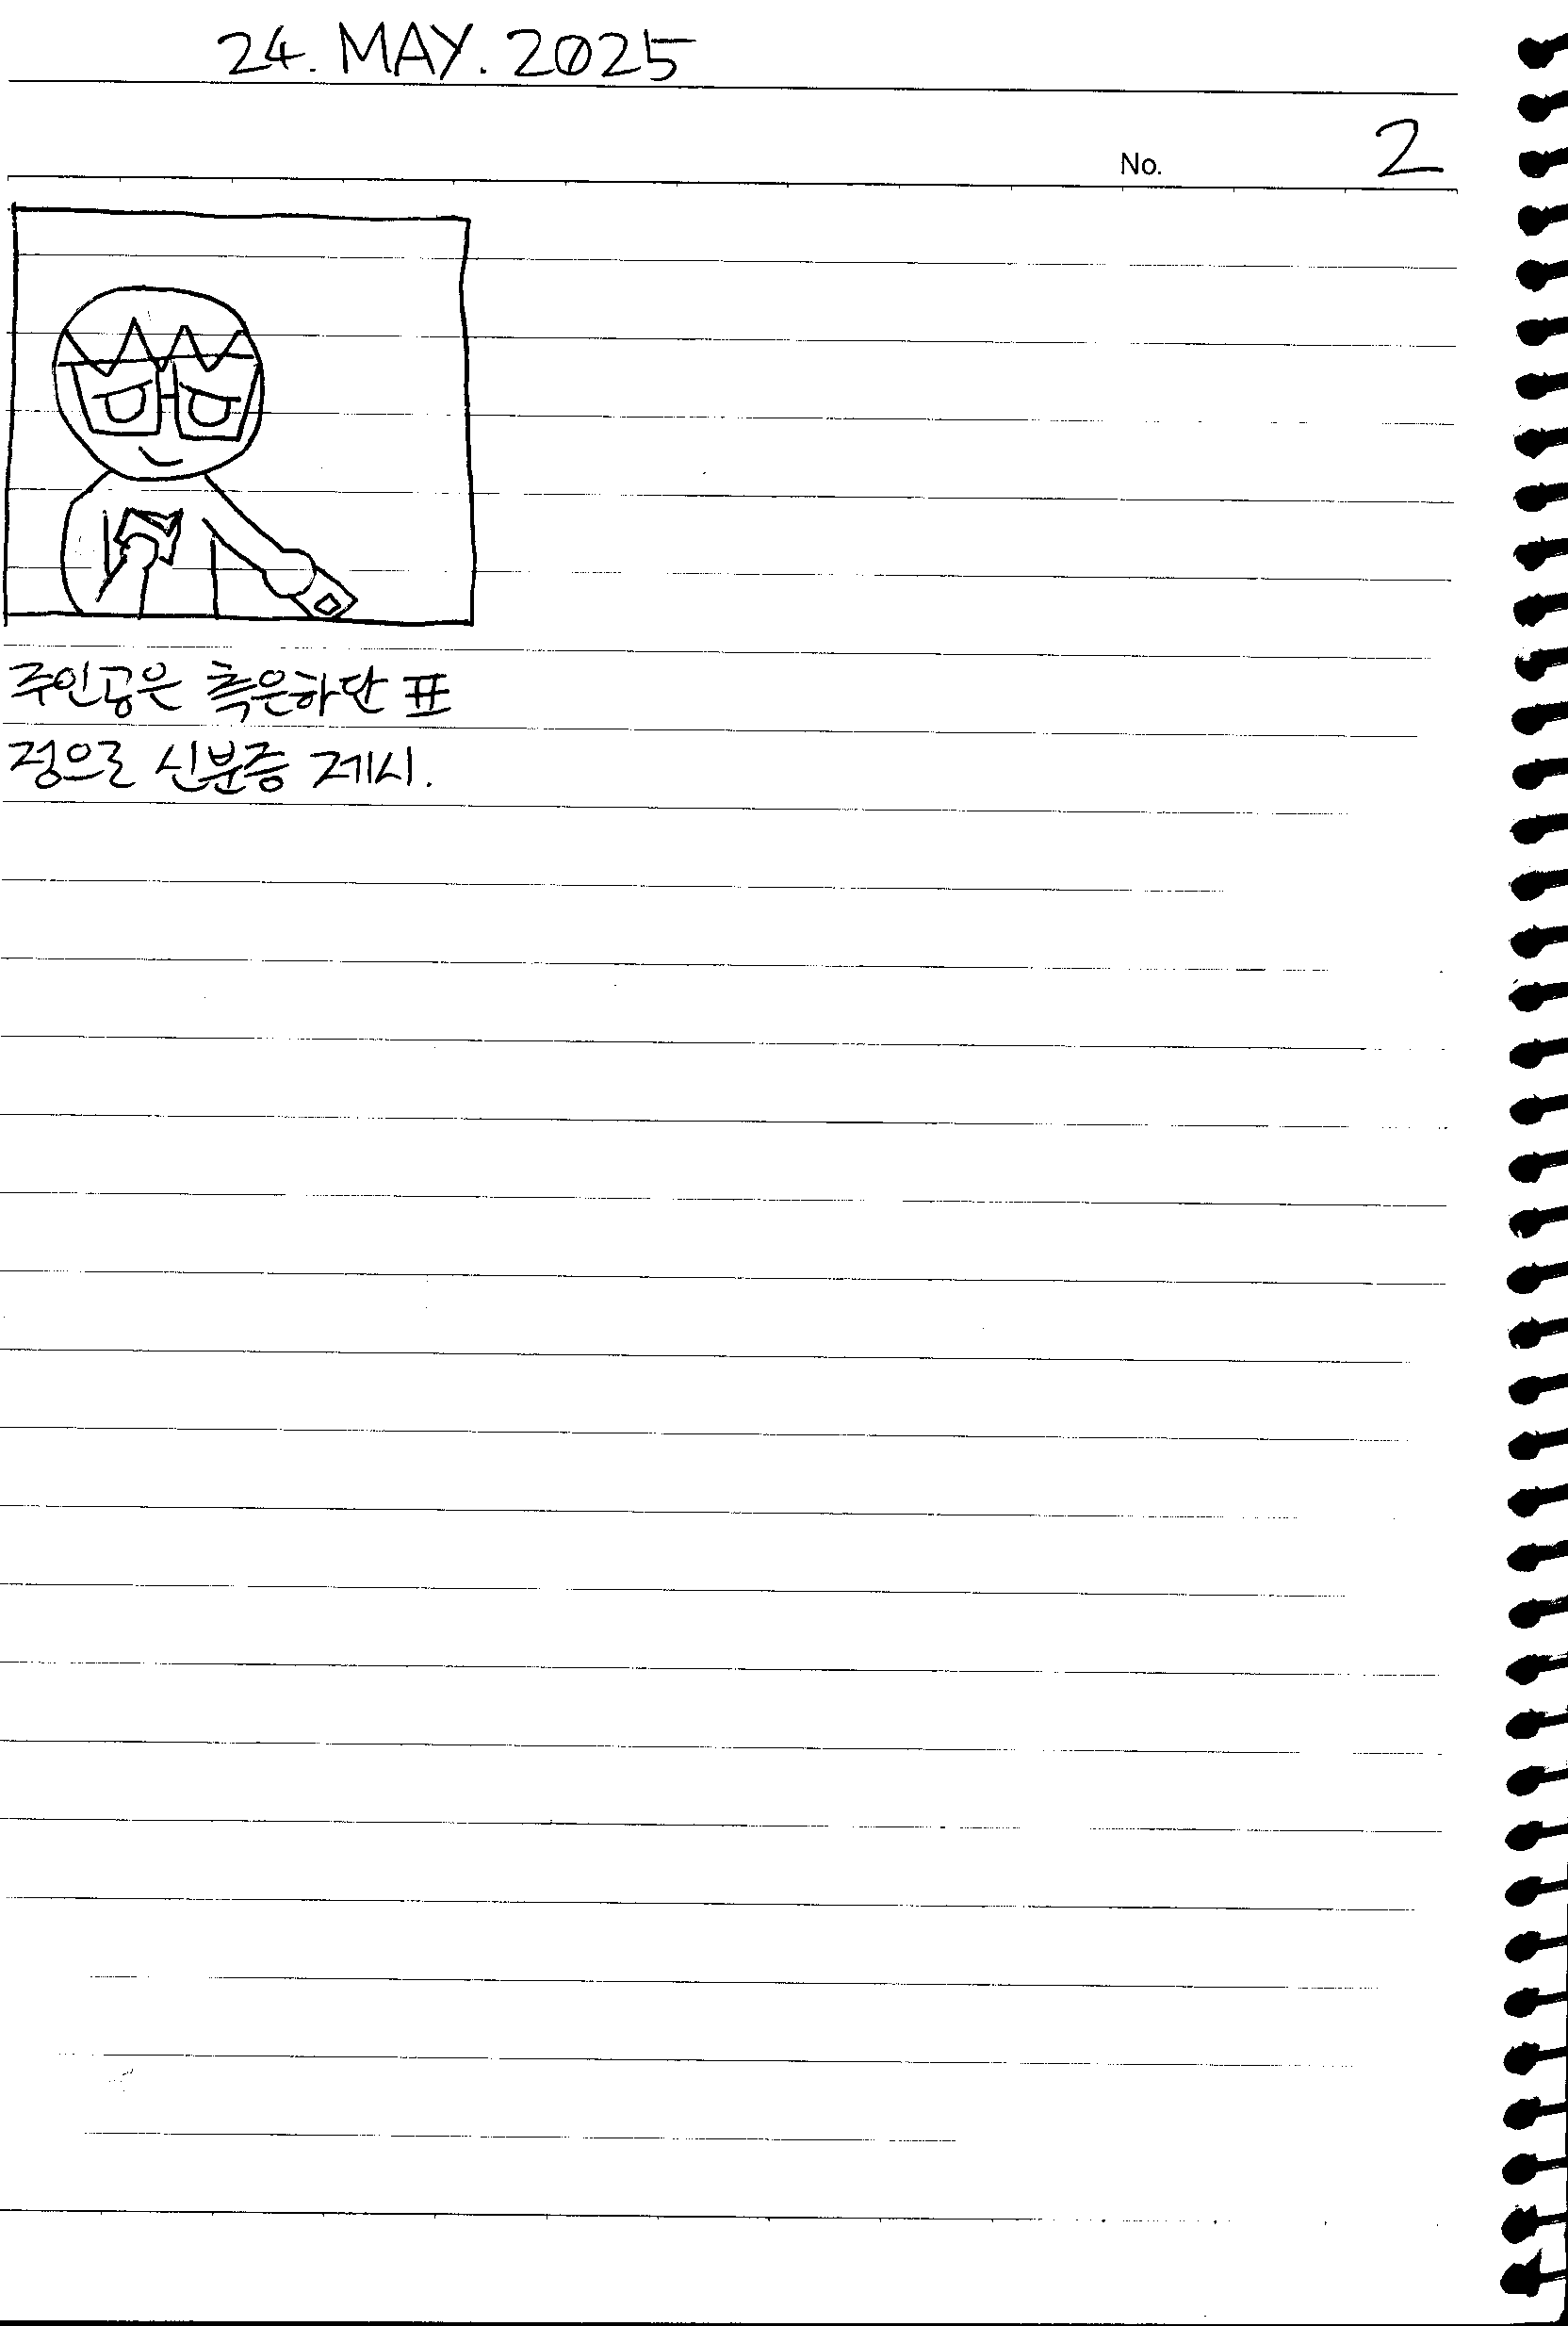 24. MAY. 2025
No. 2
주인공은 측은하단 표
정으로 신분증 제시.